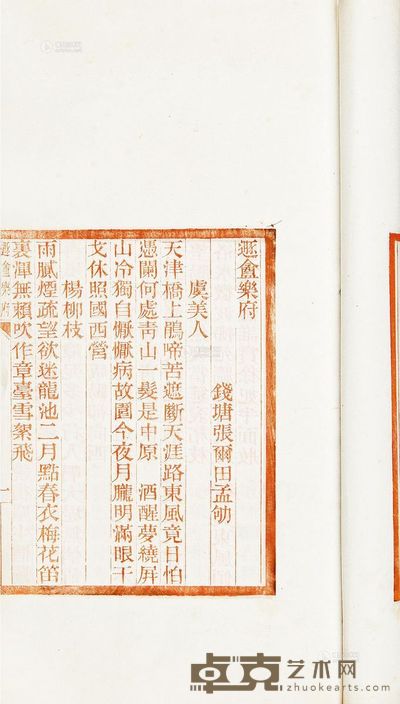 遯盦樂府
錢塘張爾田孟劬
虞美人
天津橋上鵑啼苦遮斷天涯路東風竟日怕
憑闌何處靑山一髮是中原　酒醒夢繞屏
山冷獨自懨懨病故園今夜月朧明滿眼干
戈休照國西營
楊柳枝
雨膩煙疏望欲迷龍池二月點春衣梅花笛
裏渾無賴吹作章臺雪絮飛
遯盦樂府
一
卓克艺术网
www.zhuokearts.com